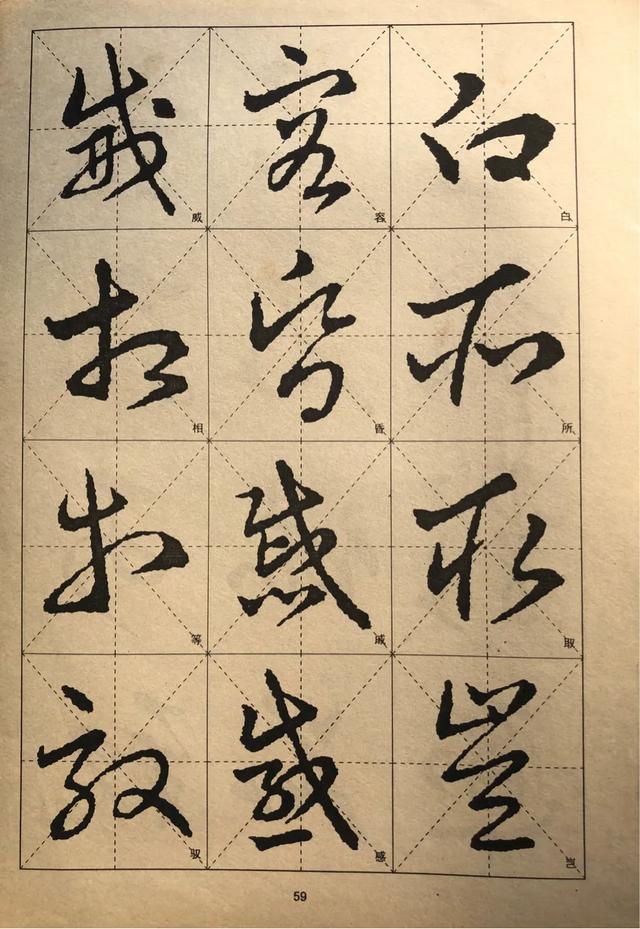 白所取岂
容昏戚感
威相等驭
59